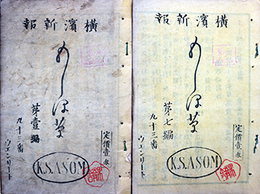 橫濱新報
もしほ草
第壹編
九十三番
ウエンリート
定價壹
K.S.ASOM
橫濱新報
もしほ草
第七編
九十三番
ウエンリート
定價壹
K.S.ASOM